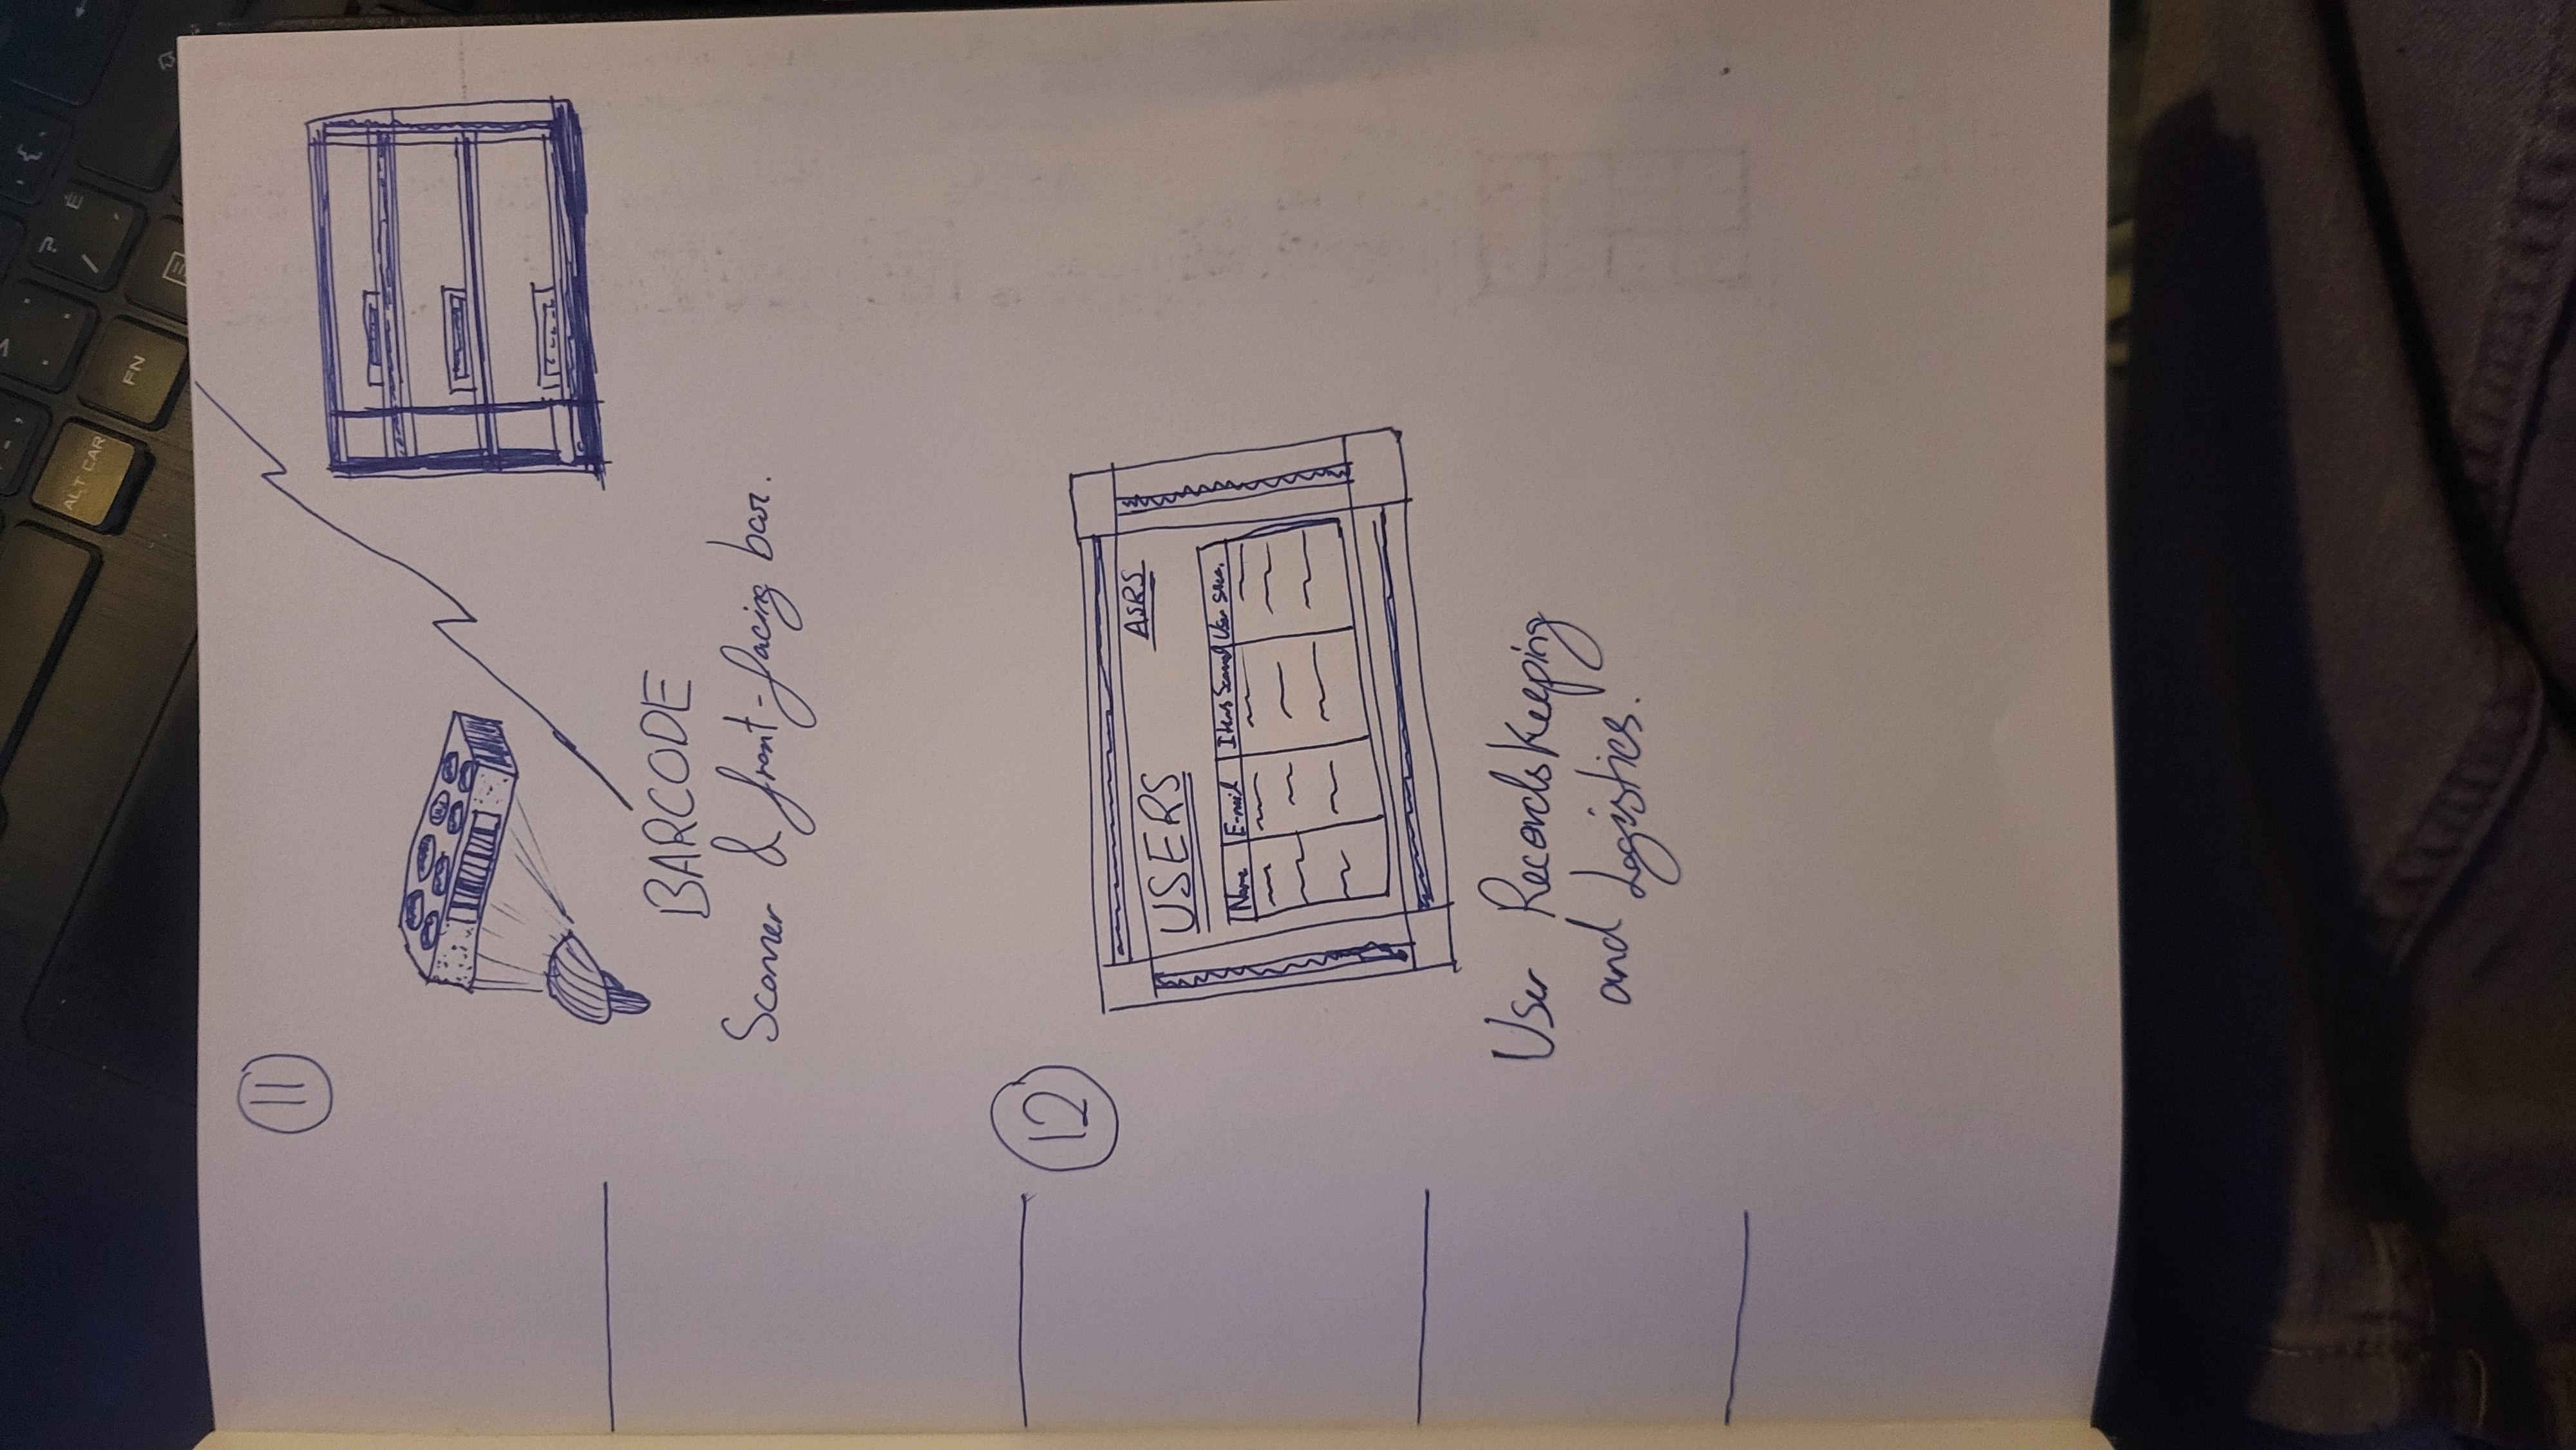 ALT CAR
FN
11
BARCODE
Scanner & front-facing bar.
12
USERS
ASRS
Name E-mail Items Scanned User
User Recordskeeping
and Logistics.